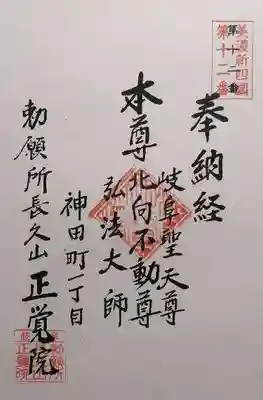 美濃新四國
第十一番
第十二番
奉納経
岐阜聖天尊
本尊北向不動尊
弘法大師
神田町一丁目
勅願所長久山正覚院